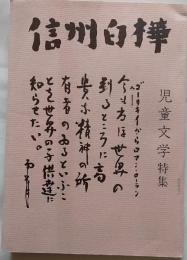 信州白樺
児童文学特集
ゴーリキイからロマン・ローラン
今も方ほ世界の
到るところに高
貴な精神の所
有者のゐるといふこ
とを世界の子供達に
知らせたい。